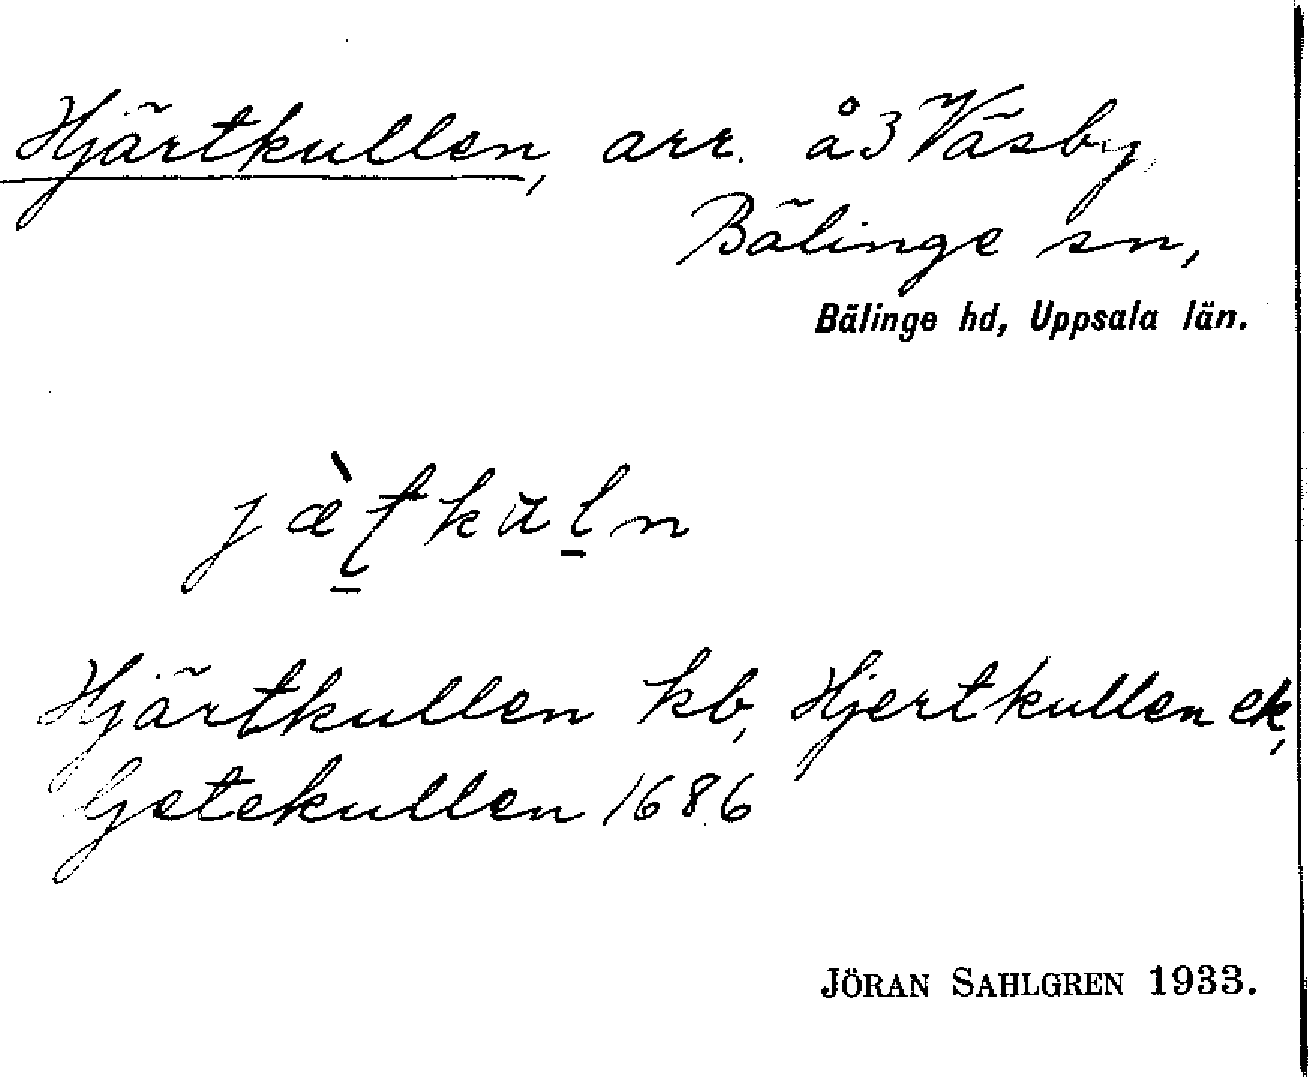 Hjärtkullen, arr. å 3 Väsby,
Bälinge sn,
Bälinge hd, Uppsala län.
Hjärtkullen kb, Hjertkullen ek,
Getekullen 1686
JÖRAN SAHLGREN 1933.